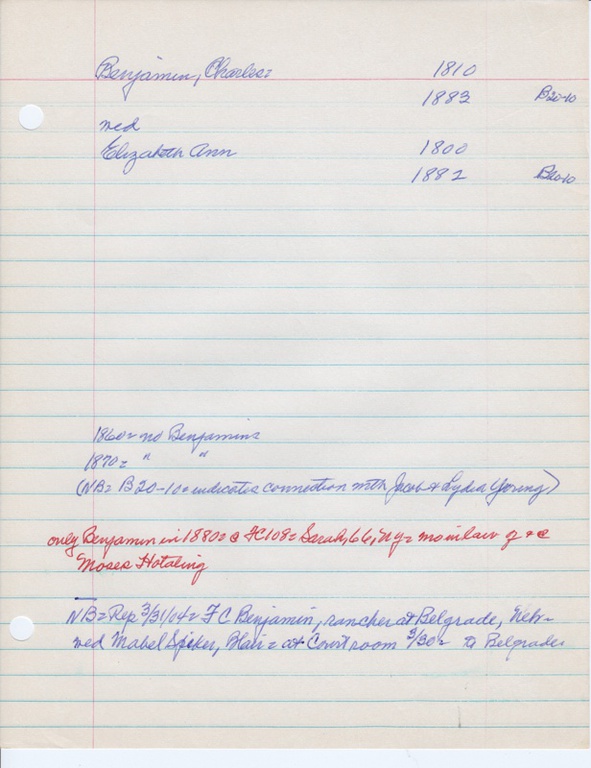 Benjamin, Charles= 1810
1883 B20-10
wed
Elizabeth Ann 1800
1882 B20-10
1860= no Benjamins
1870= " "
(NB= B20-10= indicates connection with Jacob & Lydia Young)
only Benjamin in 1880= @ FC108= Sarah, 66, NY= mo in law of & @
Moses Hotaling
NB= Rep 3/31/04= F C Benjamin, rancher at Belgrade, Neb=
wed Mabel Spiker, Blair= at Court room 3/30= to Belgrade